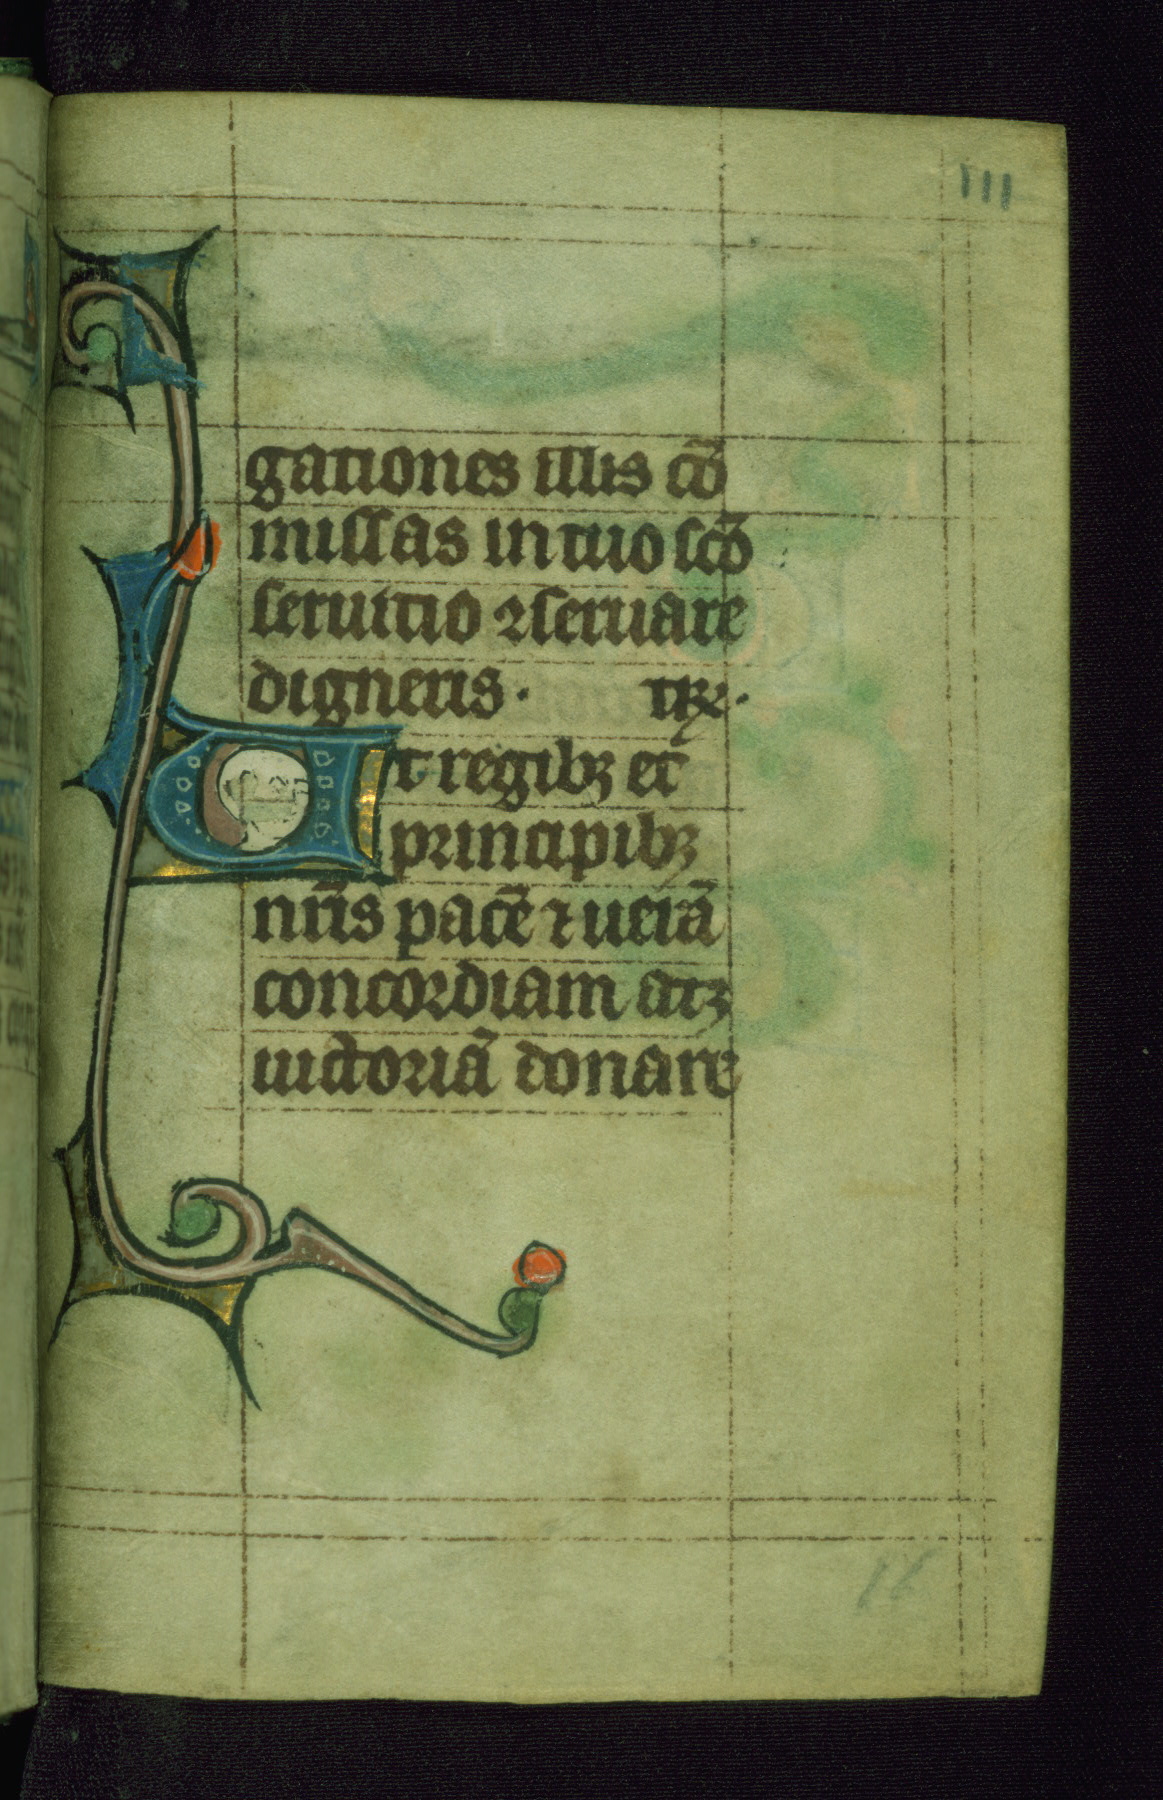 111
gationes illis cō
missas in tuo scō
seruitio ⁊ seruare
digneris · tꝶ ·
Et regibꝫ et
principibꝫ
nr̄is pacē ⁊ uerā
concordiam atꝫ
uictoriā donare